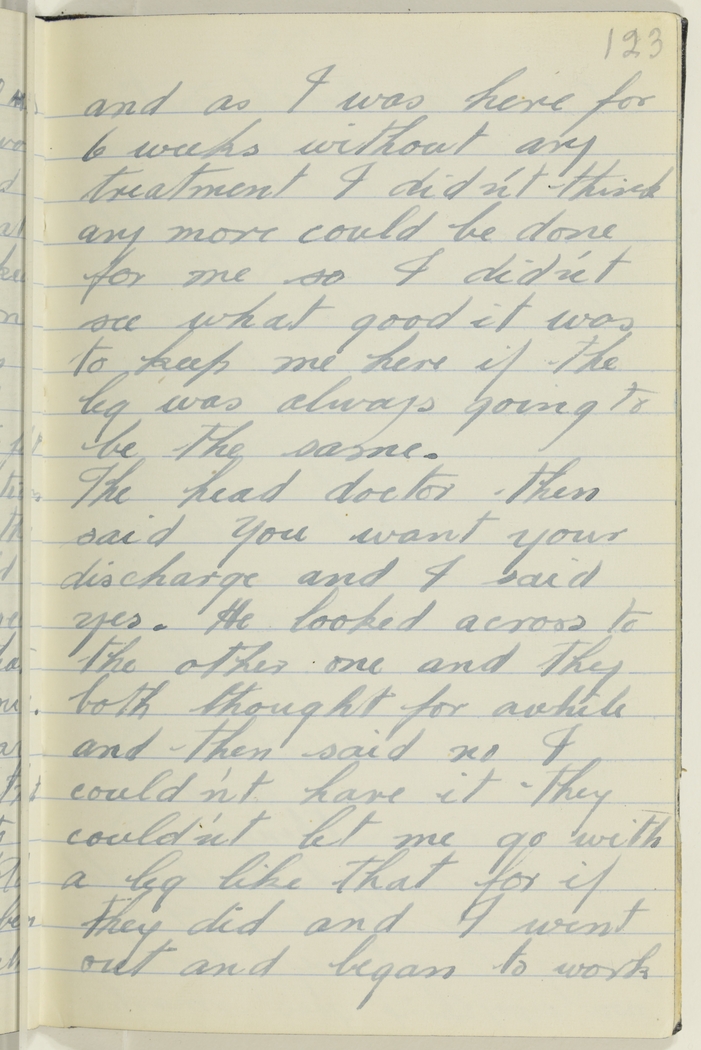 123
and as I was here for
6 weeks without any
treatment I didn't think
any more could be done
for me so I didn't
see what good it was
to keep me here if the
leg was always going to
be the same.
The head doctor then
said You want your
discharge and I said
yes. He looked across to
the other one and they
both thought for awhile
and then said no I
couldn't have it they
couldn't let me go with
a leg like that for if
they did and I went
out and began to work